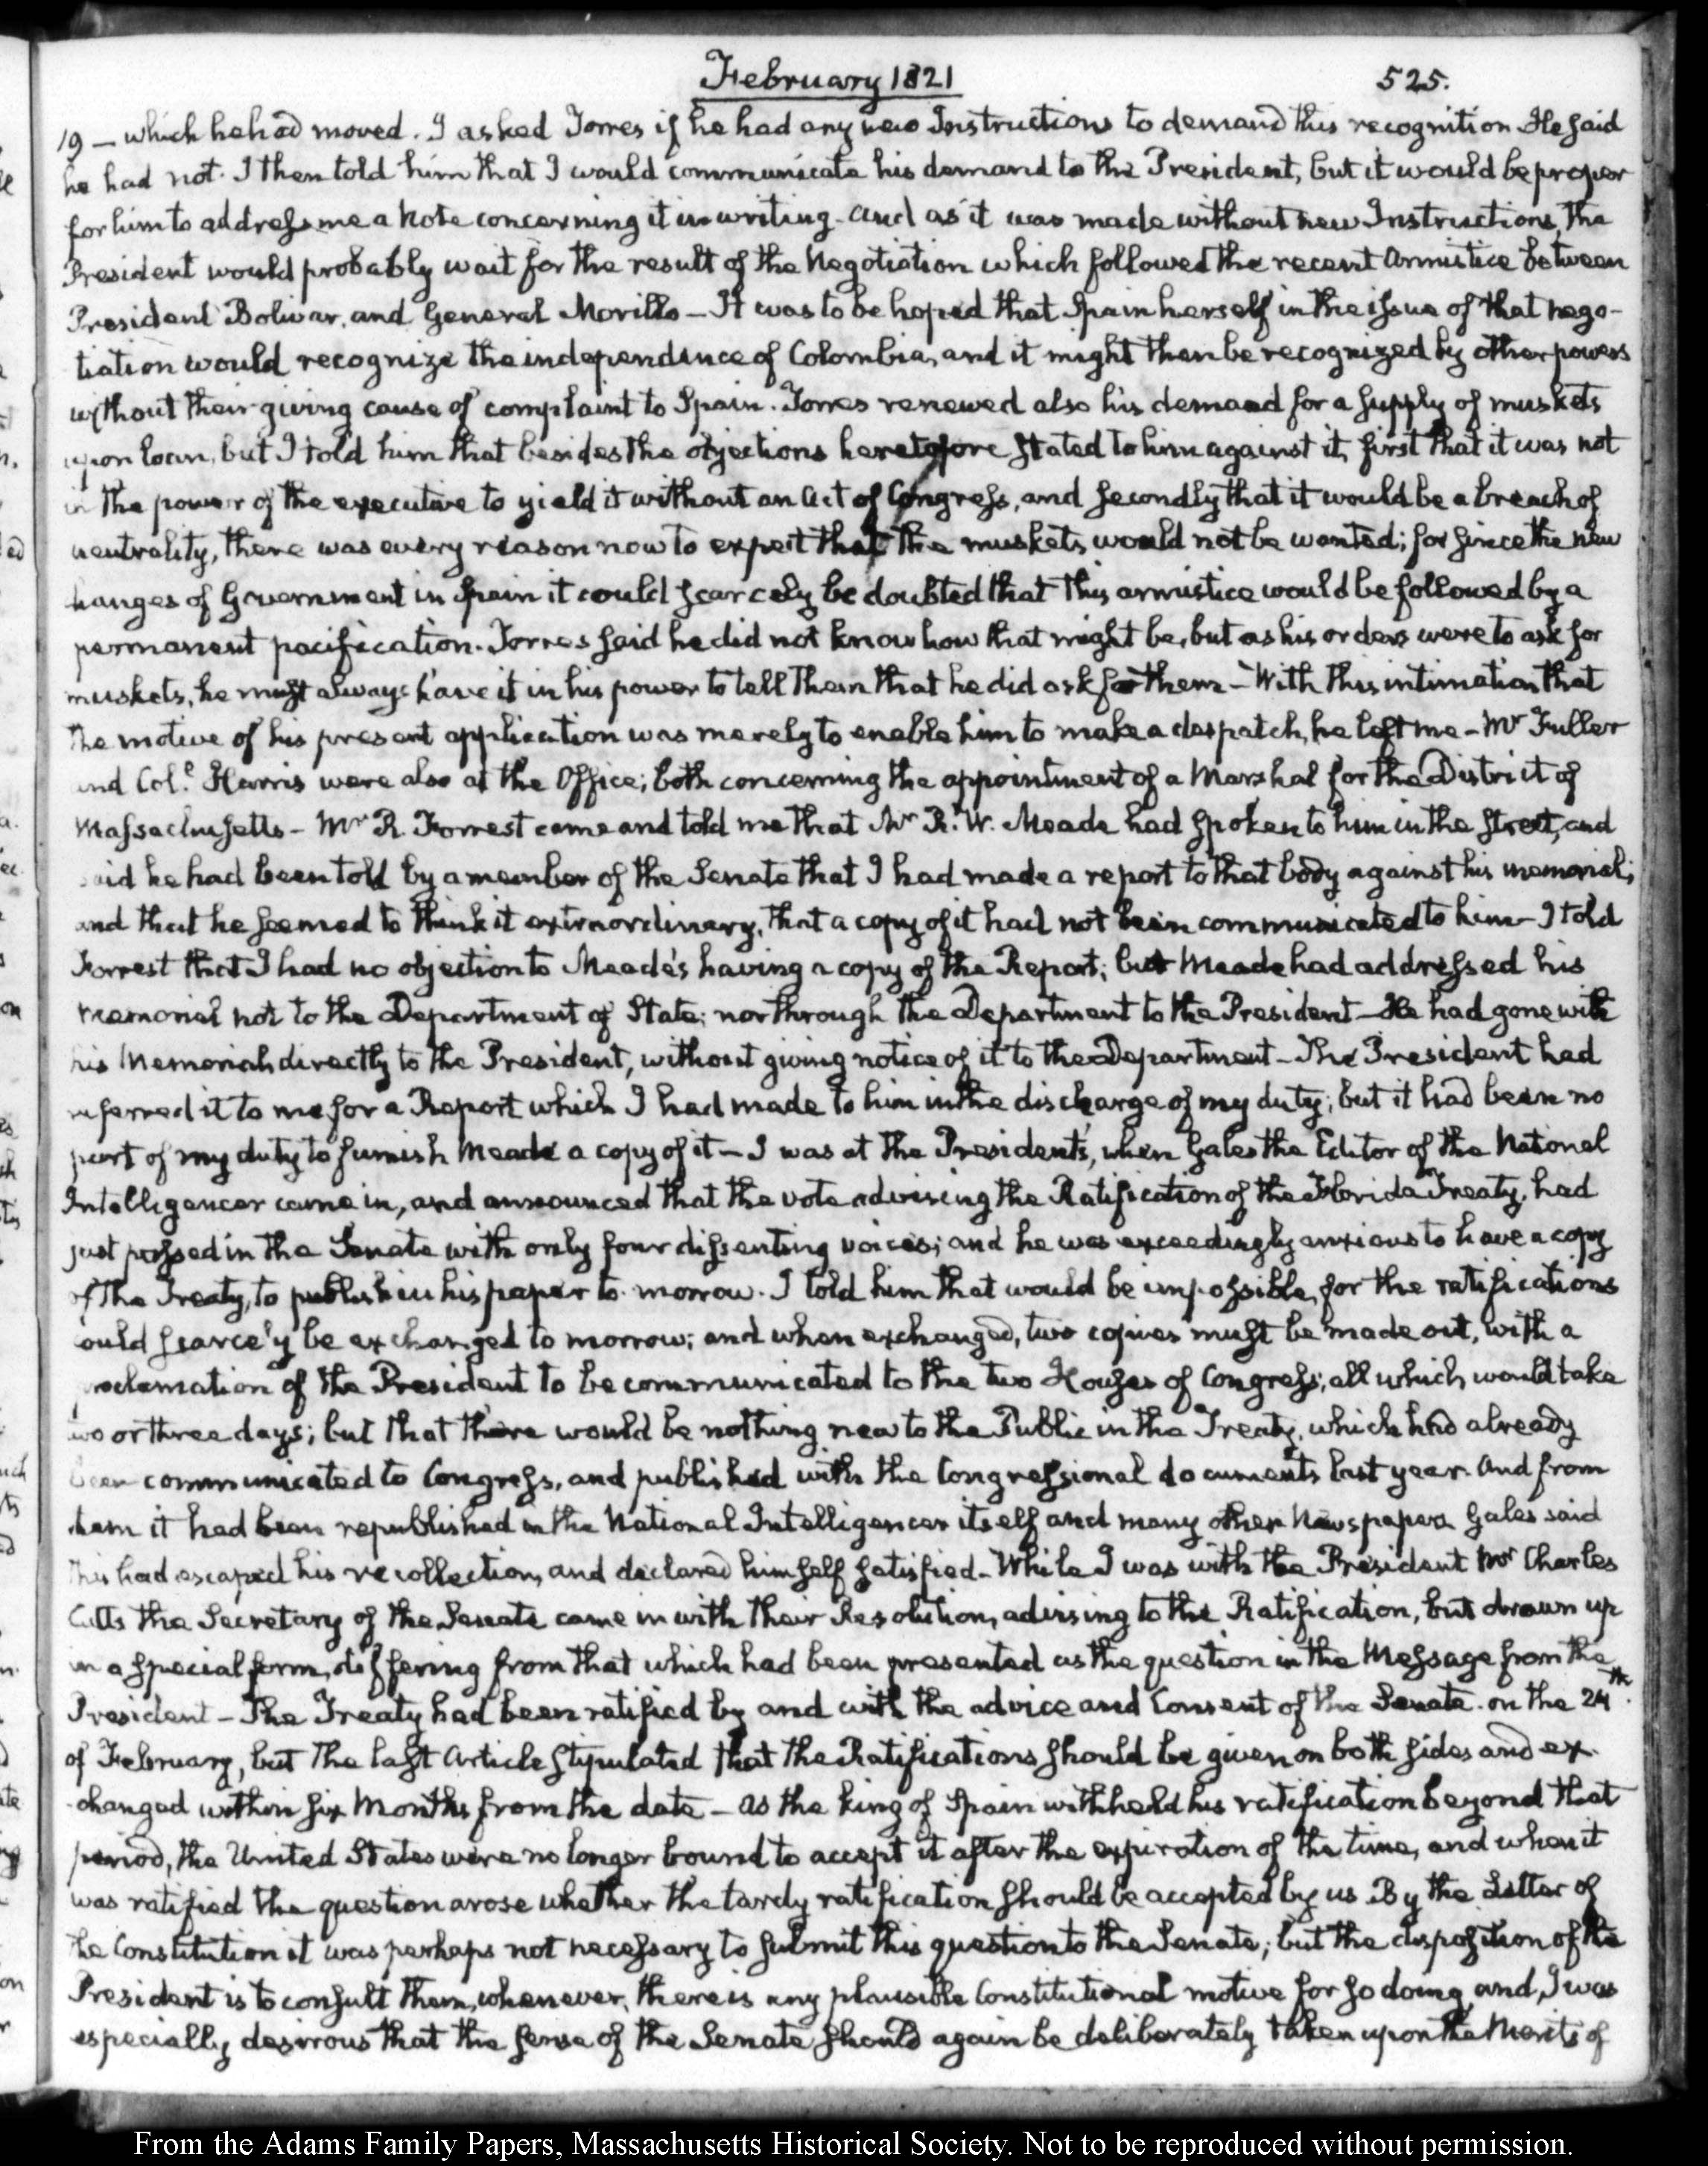 February 1821
525.
19 — which he had moved. I asked Torres if he had any new Instructions to demand this recognition He said
he had not. I then told him that I would communicate his demand to the President, but it would be proper
for him to address me a Note concerning it in writing. And as it was made without new Instructions, the
President would probably wait for the result of the Negotiation which followed the recent Armistice between
President Bolivar, and General Morillo — It was to be hoped that Spain herself in the issue of that nego-
tiation would recognize the independence of Colombia, and it might then be recognized by other powers
without their giving cause of complaint to Spain. Torres renewed also his demand for a supply of muskets
upon loan, but I told him that besides the objections heretofore stated to him against it, first that it was not
in the power of the executive to yield it without an Act of Congress, and secondly that it would be a breach of
neutrality, there was every reason now to expect that the muskets would not be wanted; for since the new
hanges of Government in Spain it could scarcely be doubted that this armistice would be followed by a
permanent pacification. Torres said he did not know how that might be, but as his orders were to ask for
muskets, he must always have it in his power to tell them that he did ask for them — With this intimation that
the motive of his present application was merely to enable him to make a despatch, he left me — Mr Fuller
and Coll. Harris were also at the Office; both concerning the appointment of a Marshal for the District of
Massachusetts — Mr R. Forrest came and told me that Mr R. W. Meade had spoken to him in the Street, and
said he had been told by a member of the Senate that I had made a report to that body against his memorial;
and that he seemed to think it extraordinary, that a copy of it had not been communicated to him — I told
Forrest that I had no objection to Meade's having a copy of the Report; but Meade had addressed his
memorial not to the Department of State; nor through the Department to the President — He had gone with
his Memorial directly to the President, without giving notice of it to the Department — The President had
referred it to me for a Report which I had made to him in the discharge of my duty; but it had been no
part of my duty to furnish Meade a copy of it — I was at the President's, when Gales the Editor of the National
Intelligencer came in, and announced that the vote advising the Ratification of the Florida Treaty, had
just passed in the Senate with only four dissenting voices; and he was exceedingly anxious to have a copy
of the Treaty, to publish in his paper to-morrow. I told him that would be impossible, for the ratifications
could scarcely be exchanged to morrow; and when exchanged, two copies must be made out, with a
proclamation of the President to be communicated to the two Houses of Congress; all which would take
two or three days; but that there would be nothing new to the Public in the Treaty, which had already
been communicated to Congress, and published with the Congressional documents last year. And from
them it had been republished in the National Intelligencer itself and many other Newspapers Gales said
this had escaped his recollection, and declared himself satisfied — While I was with the President Mr Charles
Cutts the Secretary of the Senate came in with their Resolution, advising to the Ratification, but drawn up
in a special form, differing from that which had been presented as the question in the Message from the
President — The Treaty had been ratified by and with the advice and Consent of the Senate on the 24th.
of February, but the last Article stipulated that the Ratifications should be given on both sides and ex-
changed within six Months from the date — As the king of Spain withheld his ratification beyond that
period, the United States were no longer bound to accept it after the expiration of the time, and when it
was ratified the question arose whether the tardy ratification should be accepted by us. By the Letter of
the Constitution it was perhaps not necessary to submit this question to the Senate; but the disposition of the
President is to consult them, whenever, there is any plausible Constitutional motive for so doing, and, I was
especially desirous that the sense of the Senate should again be deliberately taken upon the Merits of
From the Adams Family Papers, Massachusetts Historical Society. Not to be reproduced without permission.